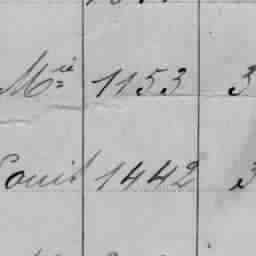 Mié 1153 3
Louis 1442 3